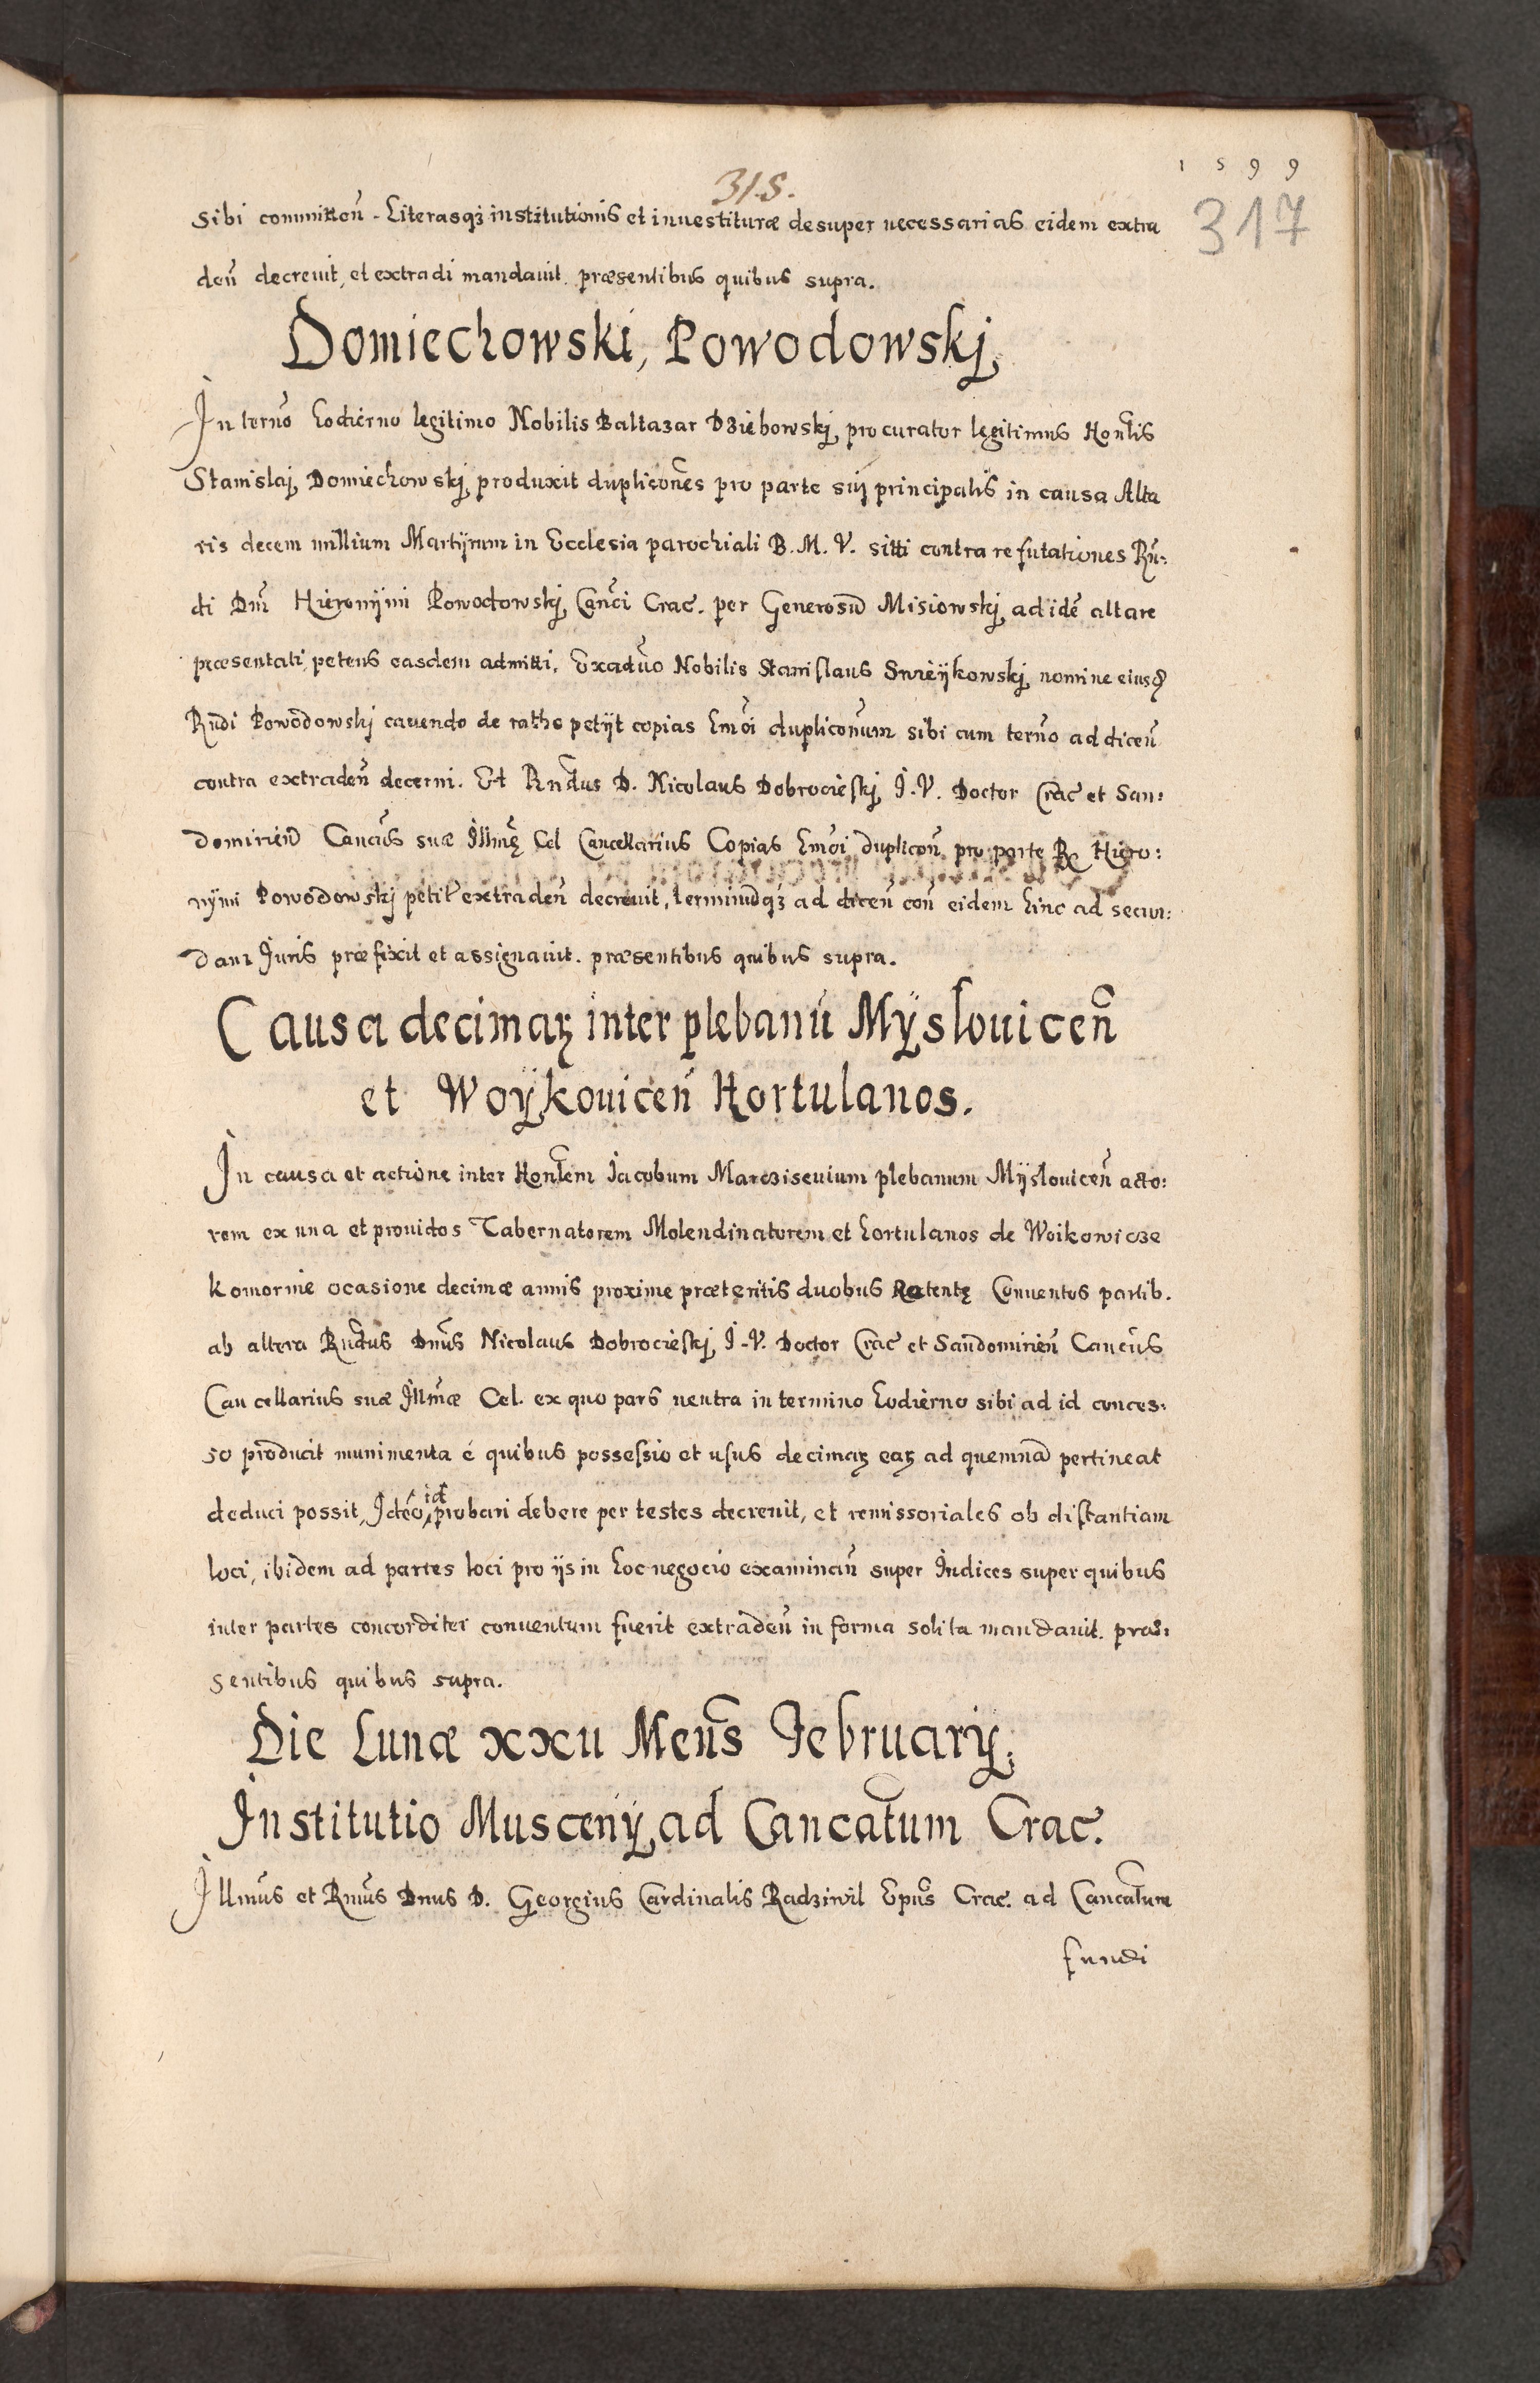 1599
315.
317
sibi committeñ. Literasqʒ institutionis et inuestituræ desuper necessarias eidem extra
deñ decreuit, et extradi mandauit. præsentibus quibus supra.
Domiechowski, Powodowskj
In terño hodierno legitimo Nobilis Baltazar Dziebowskj procurator legitimus Honlis
Stanislaj Domiechowskj produxit duplicones pro parte suj principalis in causa Alta
ris decem millium Martÿrum in Ecclesia parochiali B. M. V. sitti contra refutationes Rñ:
di Dñi Hieronÿmi Powodowskj Canci Crac. per Generosũ Misiowskj ad idẽ altare
præsentati, petens easdem admitti. Exaduo Nobilis Stanislaus Swieÿkowskj nomine eiusd
Rndi Powodowskj cauendo de ratho petÿt copias hmõi dupliconum sibi cum terño ad diceñ
contra extradeñ decerni. Et Rndus D. Nicolaus Dobrocieskj I. V. Doctor Crac et San:
domirieñ Cancus suæ Illmę Cel Cancellarius Copias hmõi duplicoñ pro parte R Hiero:
nÿmi Powodowskj petit extradeñ decreuit, terminũqʒ ad diceñ coñ eidem hinc ad secun:
dam Iuris præfixit et assignauit. præsentibus quibus supra.
Causa decimaꝝ inter plebanũ Mÿslouiceñ
et Woÿkouiceñ Hortulanos.
In causa et actione inter Honlem Iacobum Marcziseuium plebanum Mÿslouiceñ acto:
rem ex una et prouidos Tabernatorem Molendinatorem et hortulanos de Woikowicze
komornie ocasione decimæ annis proxime præteritis duobus Retentę Conuentos partib.
ab altera Rndus Dnus Nicolaus Dobrocieskj I. V. Doctor Crac et Sandomirieñ Cancus
Cancellarius suæ Illmæ Cel. ex quo pars neutra in termino hodierno sibi ad id conces:
so producit munimenta é quibus possessio et usus decimaꝝ eaꝝ ad quemnã pertineat
deduci possit, Ideo id probari debere per testes decreuit, et remissoriales ob distantiam
loci, ibidem ad partes loci pro ijs in hoc negocio examinañ super Indices super quibus
inter partes concorditer conuentum fuerit extradeñ in forma solita mandauit. præ:
sentibus quibus supra.
Die Lunæ xxii Mens Februarÿ.
Institutio Muscenÿ ad Cancatum Crac.
Illmus et Rmus Dnus D. Georgius Cardinalis Radziwil Epus Crac. ad Cancatum
fundi